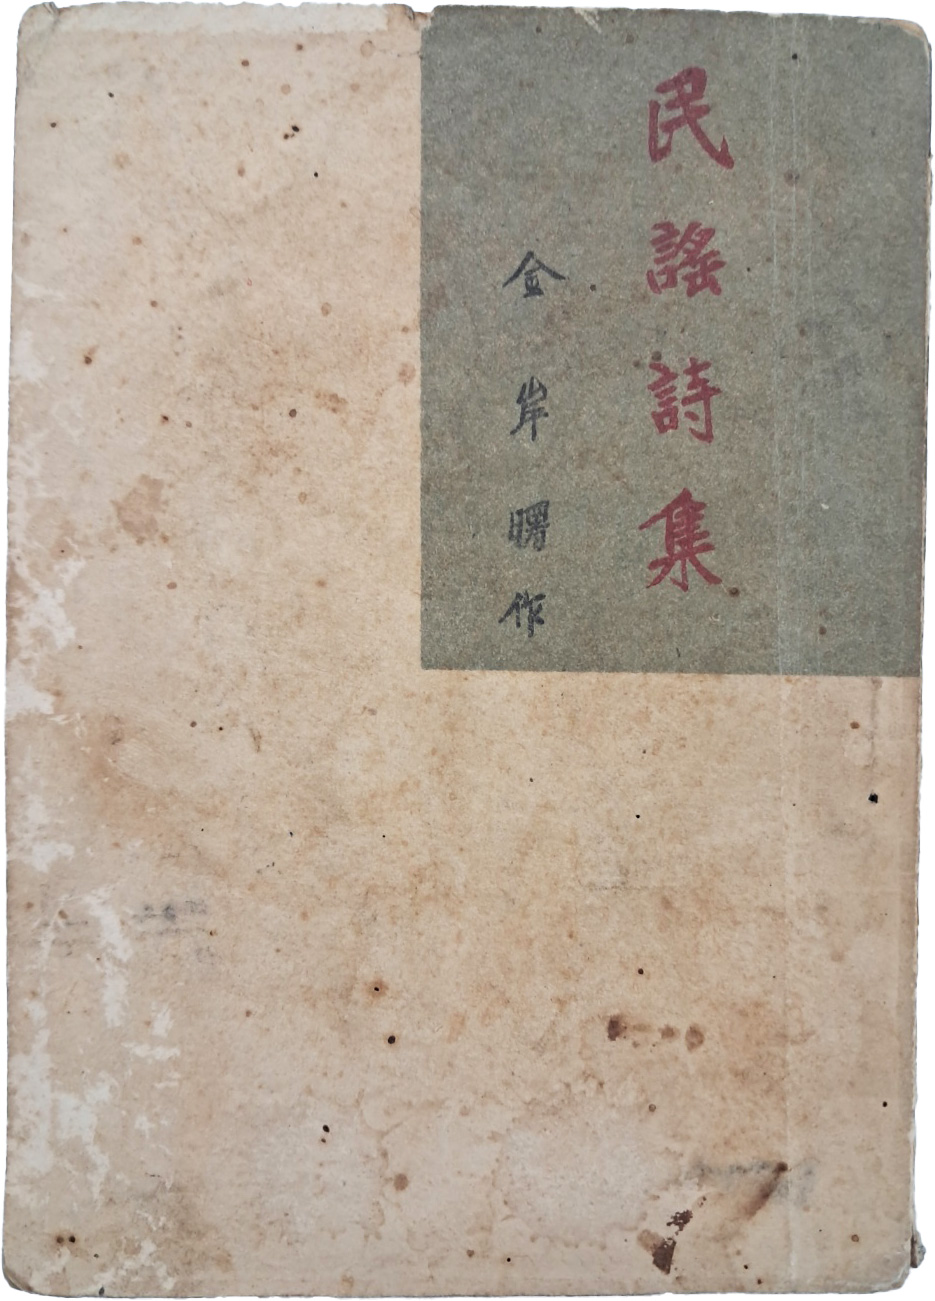 民謠詩集
金岸曙作